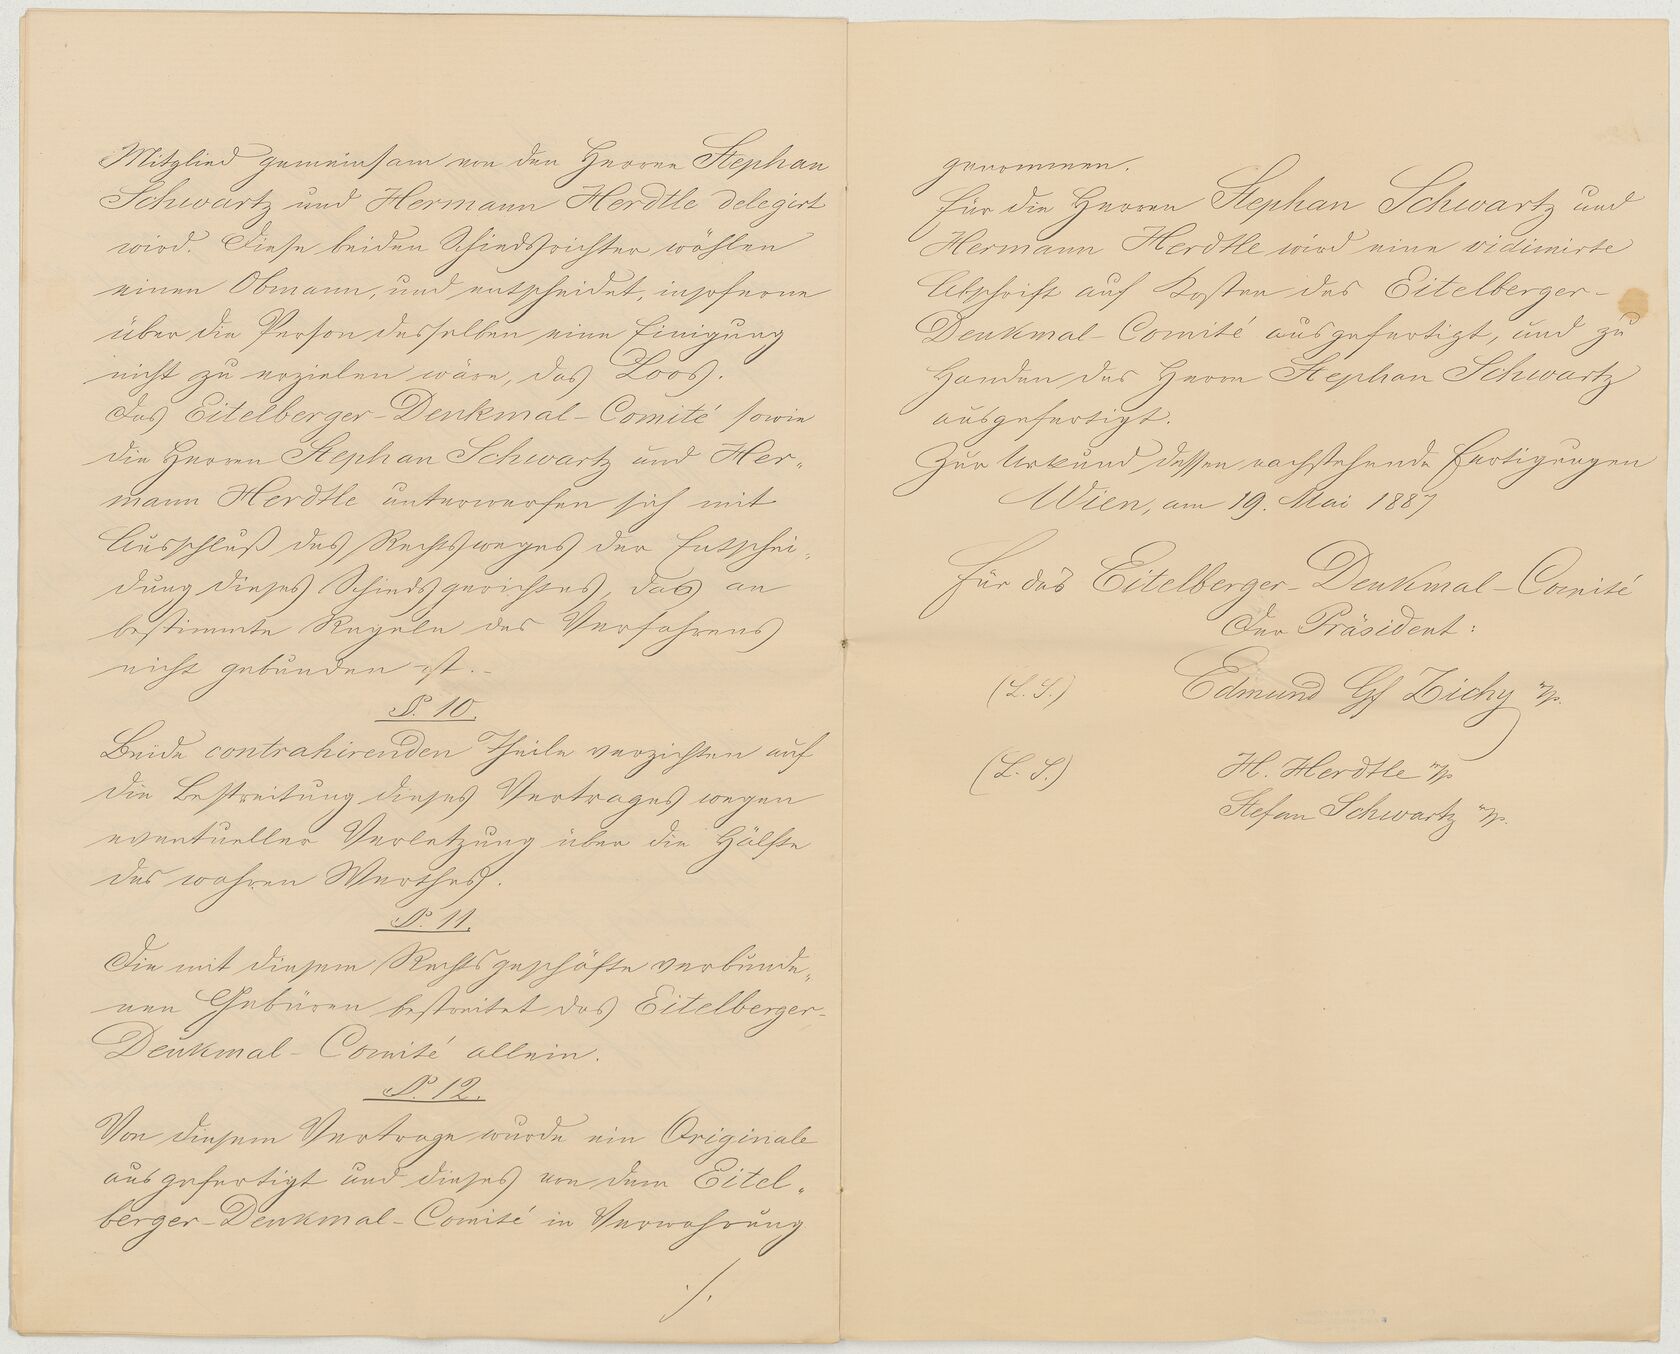 Mitglied gemeinsam von den Herren Stephan
Schwartz und Hermann Herdtle delegirt
wird. Diese beiden Schiedsrichter wählen
einen Obmann, und entscheidet, insoferne
über die Person desselben eine Einigung
nicht zu erzielen wäre, das Loos.
Das Eitelberger-Denkmal-Comité sowie
die Herren Stephan Schwartz und Her-
mann Herdtle unterwerfen sich mit
Ausschluß des Rechtsweges der Entschei-
dung dieses Schiedsgerichtes, das an
bestimmte Regeln des Verfahrens
nicht gebunden ist.-
§. 10.
Beide contrahirenden Theile verzichten auf
die Bestreitung dieses Vertrages wegen
eventueller Verletzung über die Hälfte
des wahren Werthes.
§. 11.
Die mit diesem Rechtsgeschäfte verbunde-
nen Gebüren bestreitet das Eitelberger-
Denkmal-Comité allein.
§. 12.
Von diesem Vertrage wurde ein Originale
ausgefertigt und dieses von dem Eitel-
berger-Denkmal-Comité in Verwahrung
./.
genommen.
Für die Herren Stephan Schwartz und
Hermann Herdtle wird eine vidimirte
Abschrift auf Kosten des Eitelberger-
Denkmal-Comité ausgefertigt, und zu
Handen des Herrn Stephan Schwartz
ausgefertigt.
Zur Urkund dessen nachstehende Fertigungen
Wien, am 19. Mai 1887
Für das Eitelberger-Denkmal-Comité
Der Präsident:
(L. S.) Edmund Gf Zichy m/p.
(L. S.) H. Herdtle m/p
Stefan Schwartz m/p.